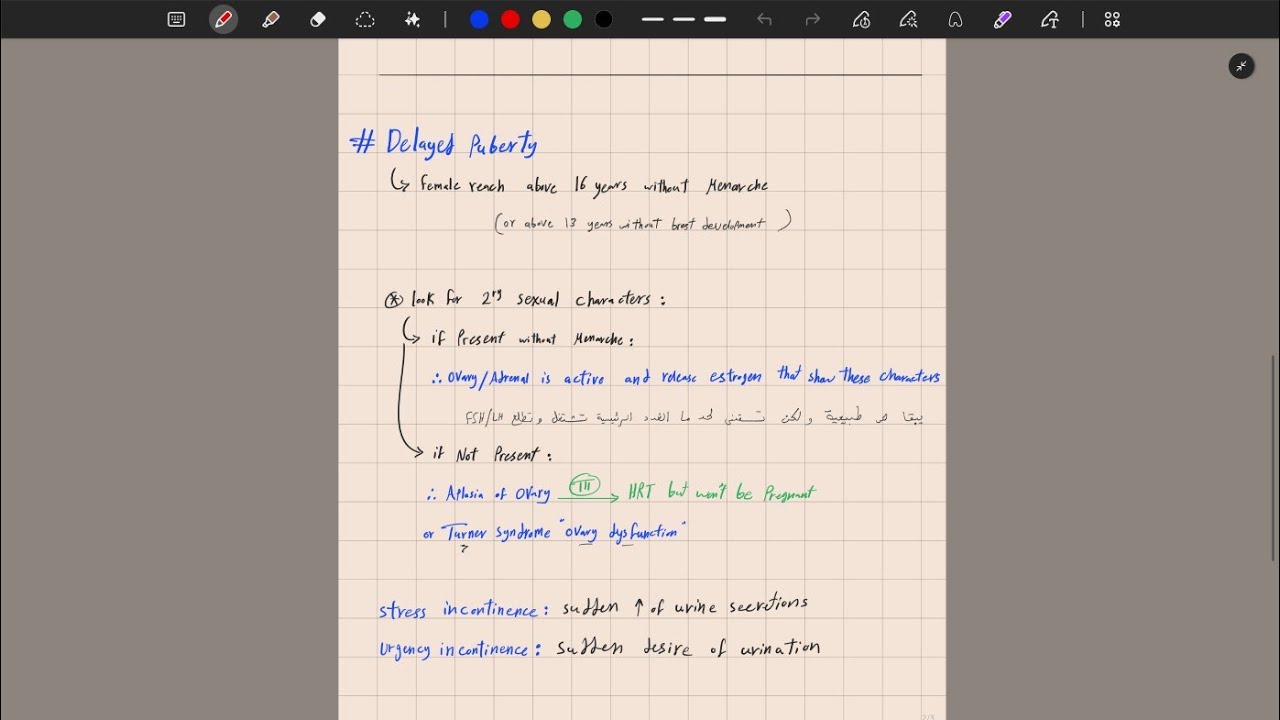 # Delayed Puberty
female reach above 16 years without Menarche
(or above 13 years without brest development)
* look for 2ry sexual characters:
if Present without Menarche:
∴ Ovary/Adrenal is active and release estrogen that show these characters
يبقا هي طبيعية ولكن تستني لحد ما الغدد الرئيسية تشتغل وتطلع FSH/LH
if Not Present:
∴ Aplasia of Ovary TTT → HRT but won't be Pregnant
or Turner syndrome "ovary dysfunction"
stress incontinence: sudden ↑ of urine secretions
Urgency incontinence: sudden desire of urination
2/3